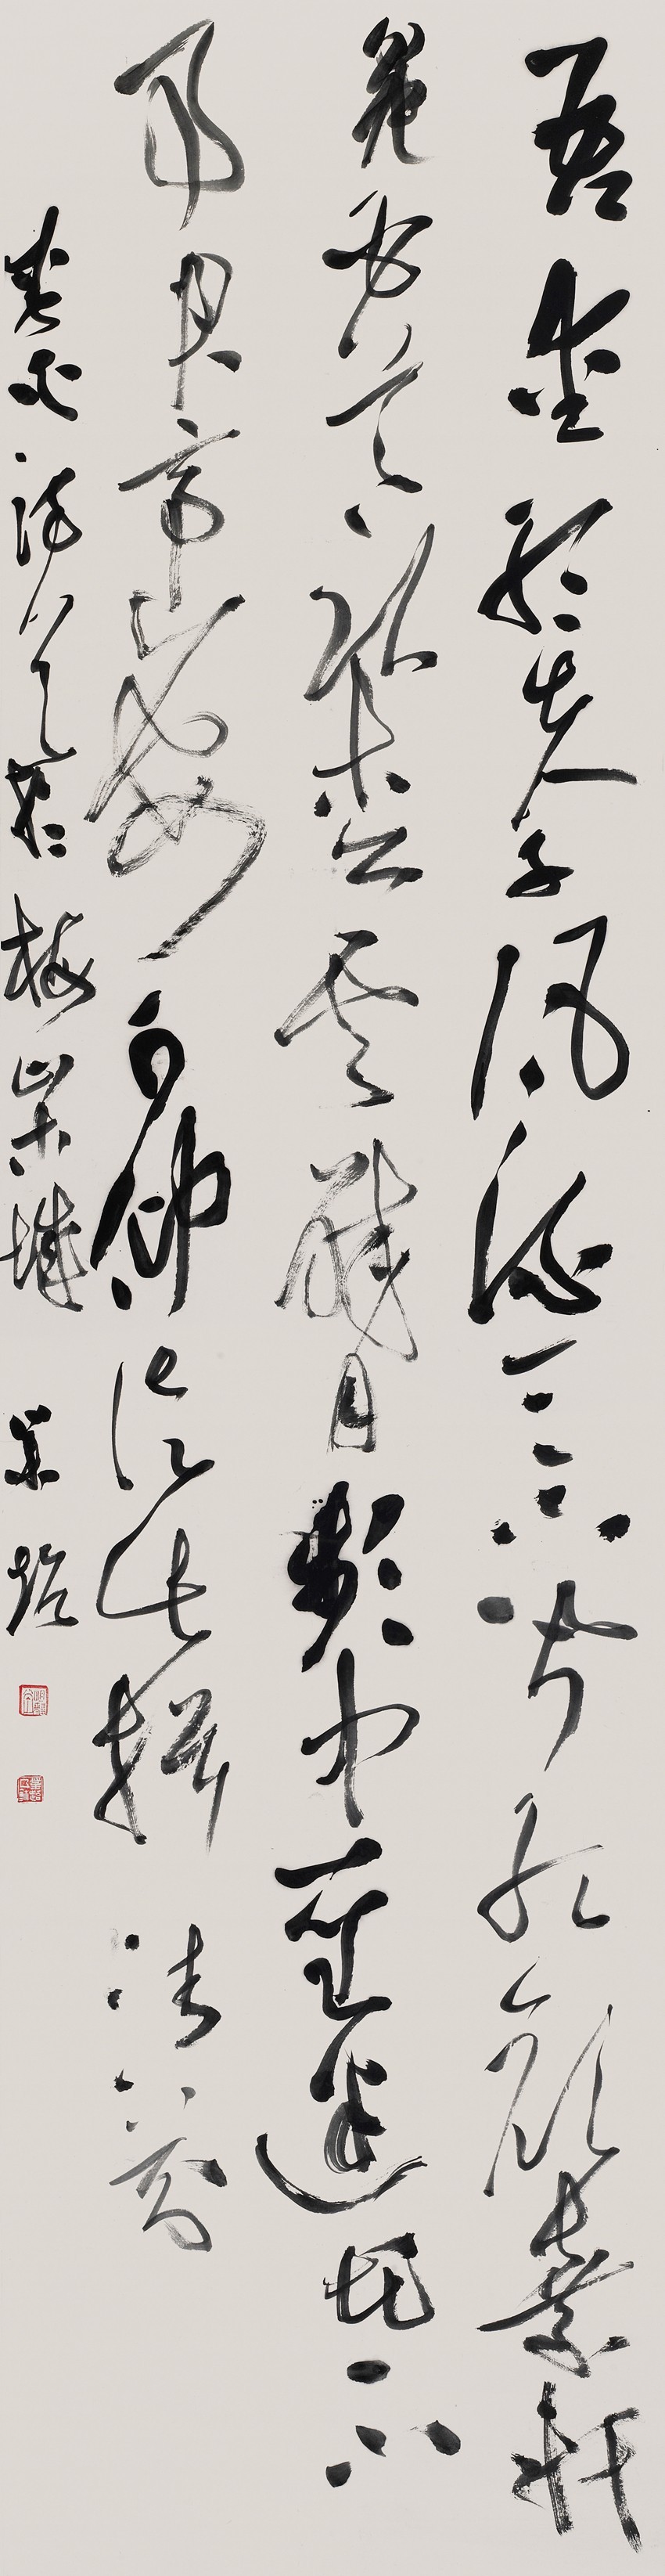 吾爱孟夫子风流天下闻红颜弃轩
冕白首卧松云醉月频中圣迷花不
事君高山安可仰徒此揖清芬
李白诗